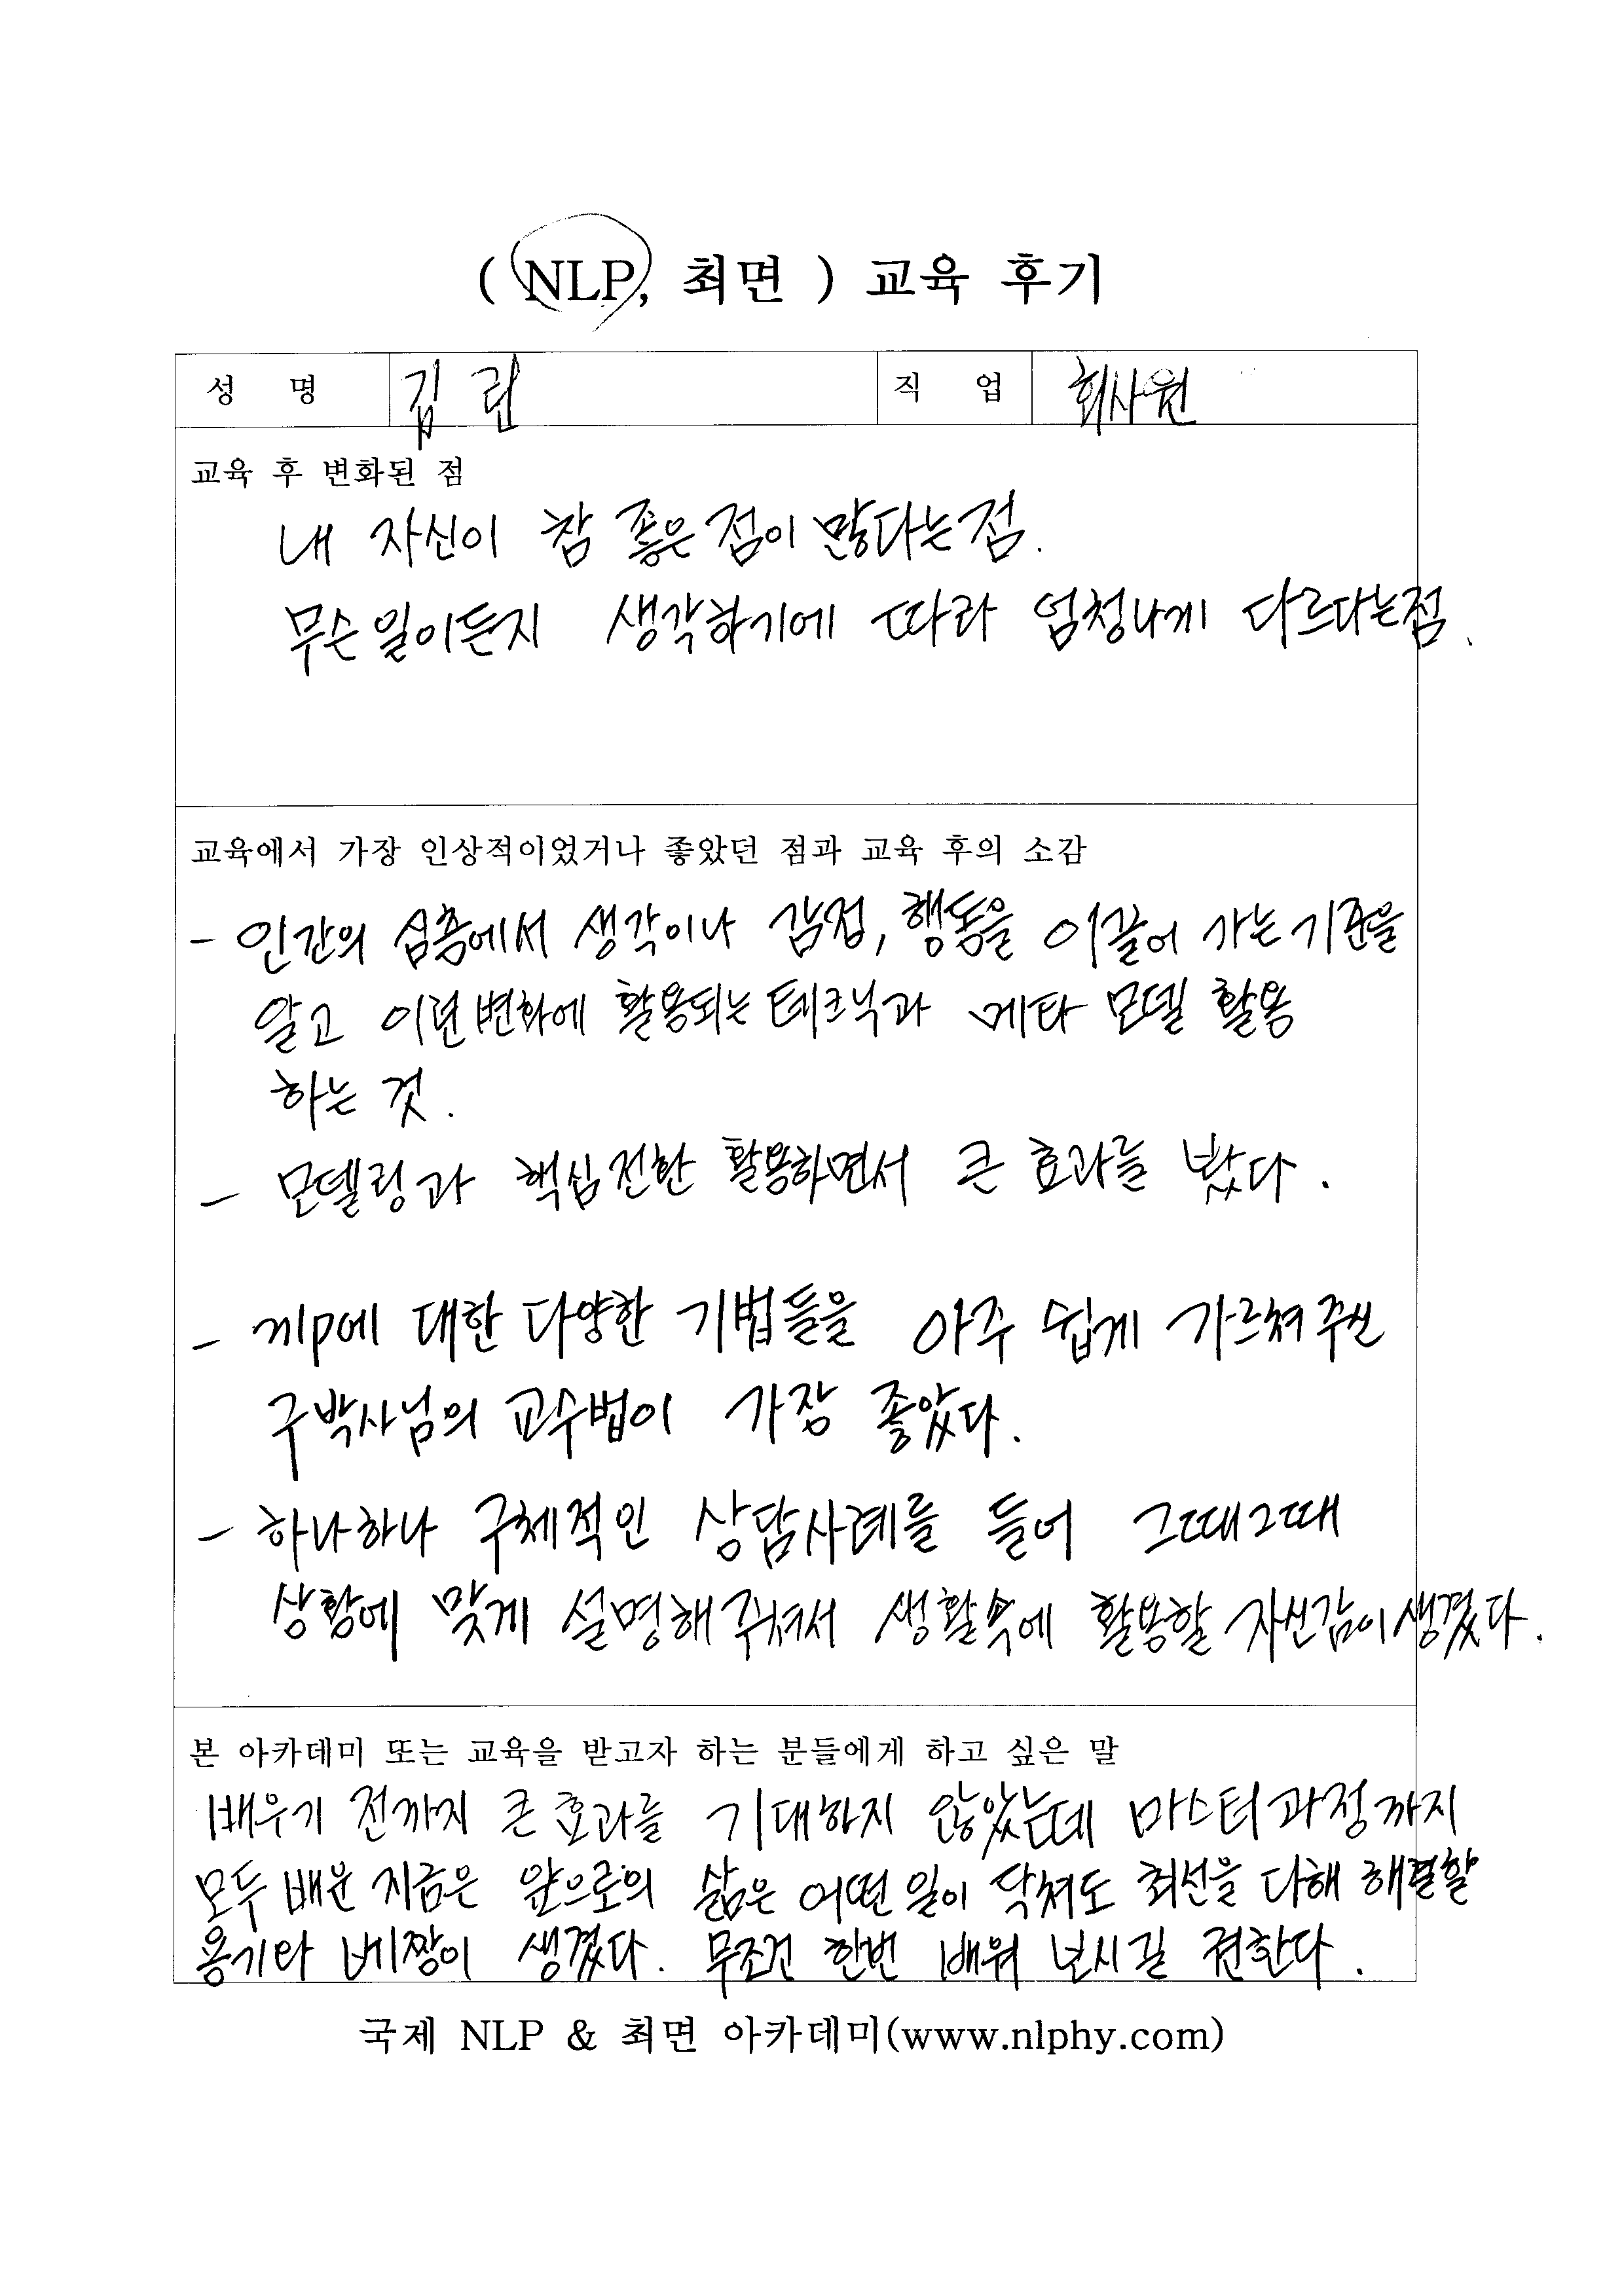 ( NLP, 최면 ) 교육 후기
성 명 김 직 업 회사원
교육 후 변화된 점
내 자신이 참 좋은 점이 많다는 점.
무슨 일이든지 생각하기에 따라 엄청나게 다르다는 점.
교육에서 가장 인상적이었거나 좋았던 점과 교육 후의 소감
- 인간의 심층에서 생각이나 감정, 행동을 이끌어 가는 기준을
알고 이런 변화에 활용되는 테크닉과 메타 모델 활용
하는 것.
- 모델링과 핵심전환 활용하면서 큰 효과를 봤다.
- nlp에 대한 다양한 기법들을 아주 쉽게 가르쳐 주신
구박사님의 교수법이 가장 좋았다.
- 하나하나 구체적인 상담사례를 들어 그때그때
상황에 맞게 설명해 주셔서 생활속에 활용할 자신감이 생겼다.
본 아카데미 또는 교육을 받고자 하는 분들에게 하고 싶은 말
배우기 전까지 큰 효과를 기대하지 않았는데 마스터과정까지
모두 배운 지금은 앞으로의 삶은 어떤 일이 닥쳐도 최선을 다해 해결할
용기와 베짱이 생겼다. 무조건 한번 배워 보시길 전한다.
국제 NLP & 최면 아카데미(www.nlphy.com)